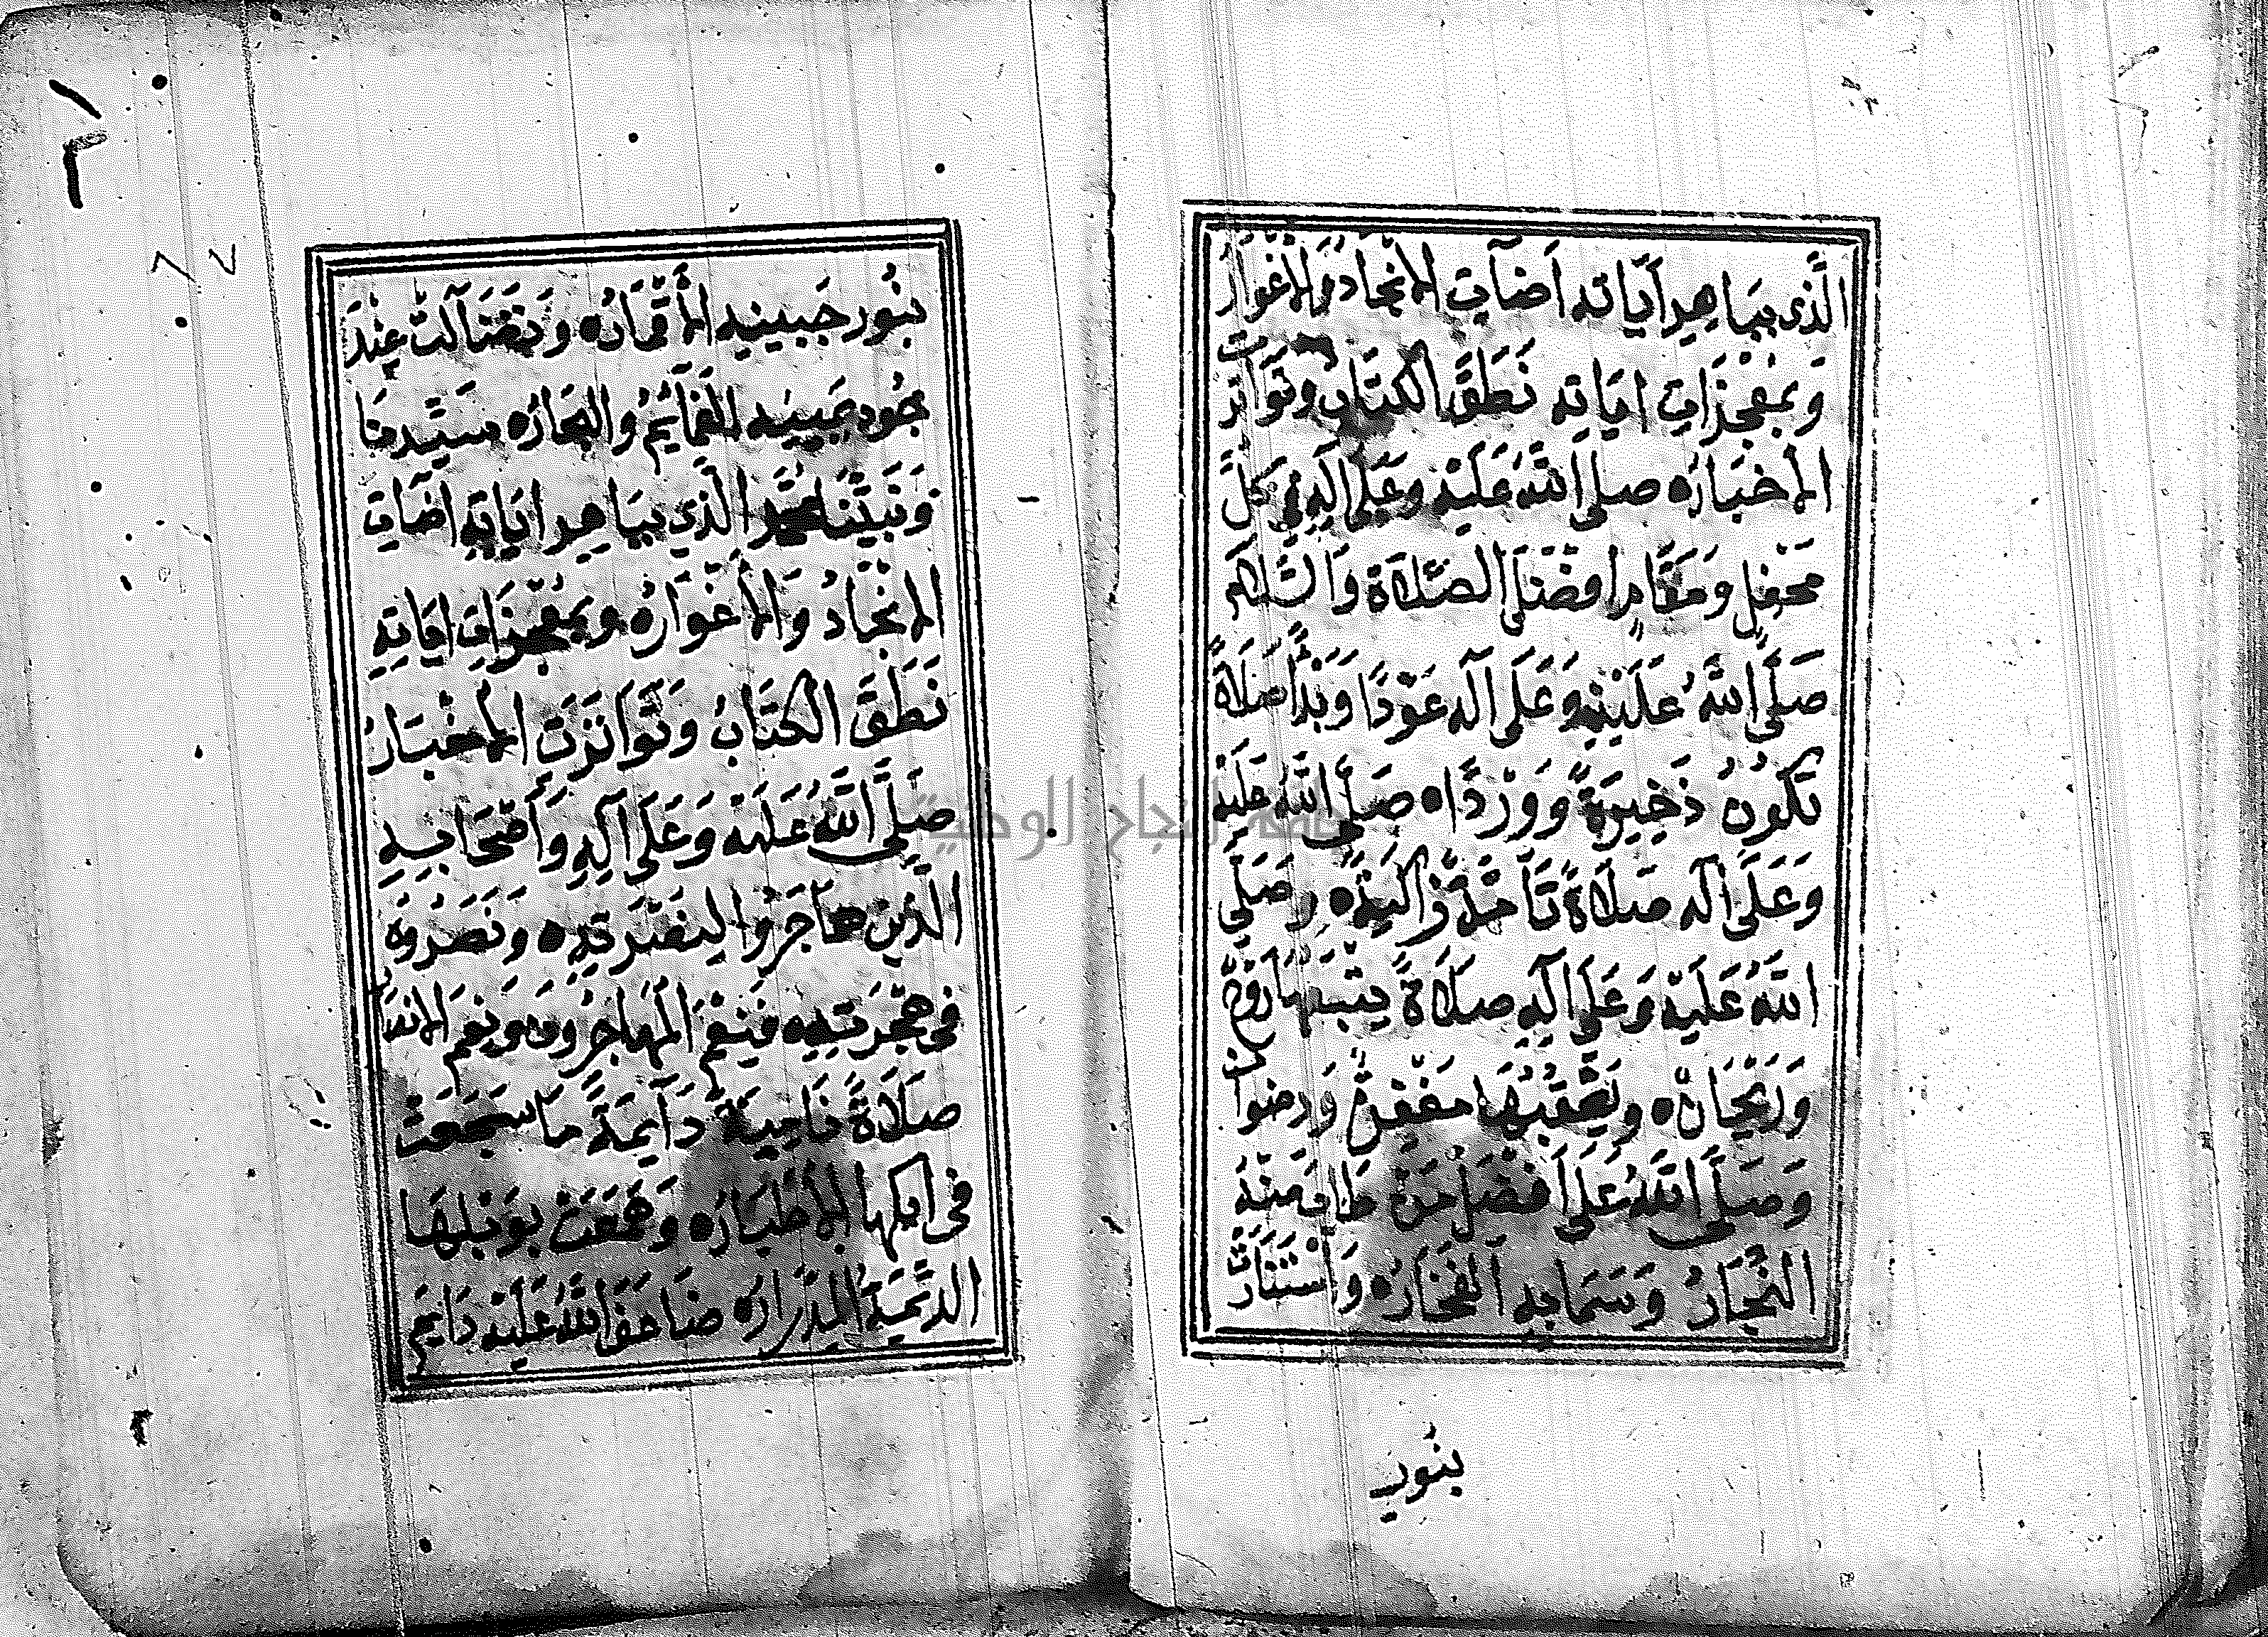 الَّذِي بِبَاهِرِ آيَاتِهِ اَضَآتِ الاَنْجَادُ وَالاَغْوَارُ
وَبِمُعْجِزَاتِ ايَاتِهِ نَطَقَ الكِتَابُ وَتَوَاتَرَتِ
الاَخْبَارُه صلى اللهُ عَلَيْهِ وعَلَى آلِهِ فِي كُلِّ
مَحْفِلٍ وَمَقَامٍ افضَلَ الصَّلَاةِ وَالسَّلَام
صَلَّى اللهُ عَلَيْهِ وَعَلَى آلِهِ عَوْدًا وَبَدْأً صَلَاةً
تَكُونُ ذَخِيرَةً وَوِرْدًا ه صَلَى اللهُ عَلَيْهِ
وَعَلَى آلِهِ صَلَاةً وَصَلَّى
اللهُ عَلَيْهِ وَعَلَى آلِهِ صَلَاةً يَتْبَعُهَا رَوْحٌ
وَرَيْحَانٌ ه وَيَعْقُبُهَا مَغْفِرَةٌ وَرِضْوَانٌ
وَصَلَى اللهُ عَلَى اَفْضَلِ مَنْ طَابَ مِنْهُ
النِّجَارُ وَسَمَا بِهِ الفَخَارُه وَاسْتَنَارَتْ
بنُورِ
بنُورِ جَبِينِهِ الاَقْمَارُه وَتَضَآلَتْ عِنْدَ
جُودِ يَمِينِهِ الغَمَآئِمُ وَالبِحَارُه سَيِّدِنَا
وَنَبِيِّنَا مُحَمَّدٍ الَّذِي بِبَاهِرِ ايَاتِهِ اضَآتِ
الاَنْجَادُ وَالاَغْوَارُه وَبِمُعْجِزَاتِ ايَاتِهِ
نَطَقَ الكِتَابُ وَتَوَاتَرَتِ الاَخْبَارُ
صَلَّى اللهُ عَلَيْهِ وَعَلَى آلِهِ وَاَصْحَابِهِ
الَّذِينَ هَاجَرُوا لِنُصْرَتِهِ ه وَنَصَرُوهُ
فِي هِجْرَتِهِ ه فَنِعْمَ المُهَاجِرُونَ ه وَنِعْمَ الاَنْصَارُ
صَلَاةً نَامِيَةً دَآئِمَةً مَا سَجَعَتْ
فى ايكها الاَطْيَارُه وَهَمَعَتْ بِوَبْلِهَا
الدِّيَمَةُ المِدْرَارُه ضَاعَفَ اللهُ عَلَيْهِ دَايِمَ